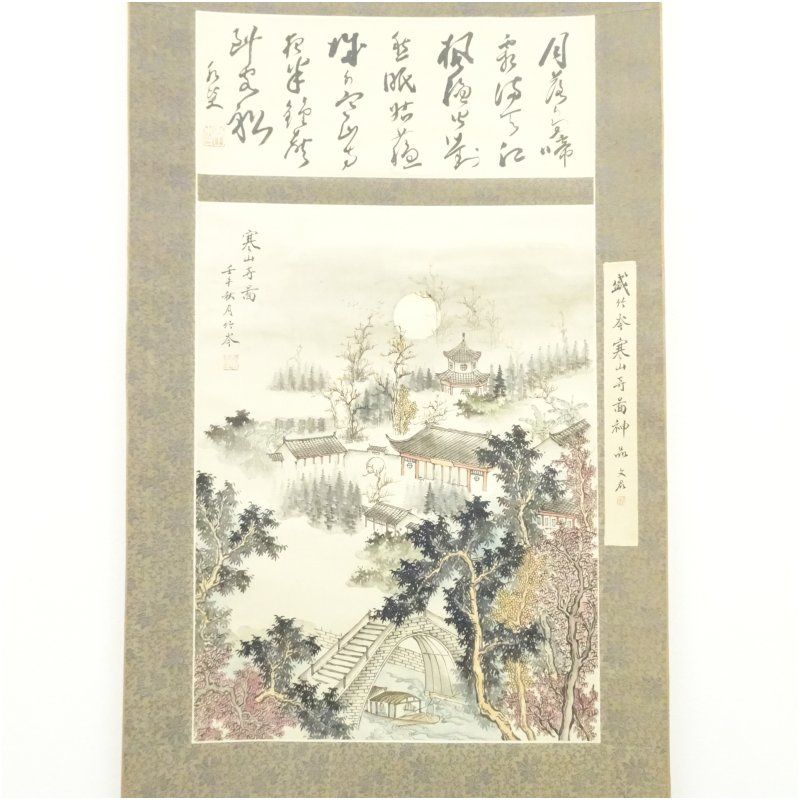 月落烏啼
霜满天江
楓漁火對
愁眠姑蘇
城外寒山寺
夜半鐘聲
到客船
寒山寺圖
壬午秋月竹岑
盛竹岑寒山寺圖神品